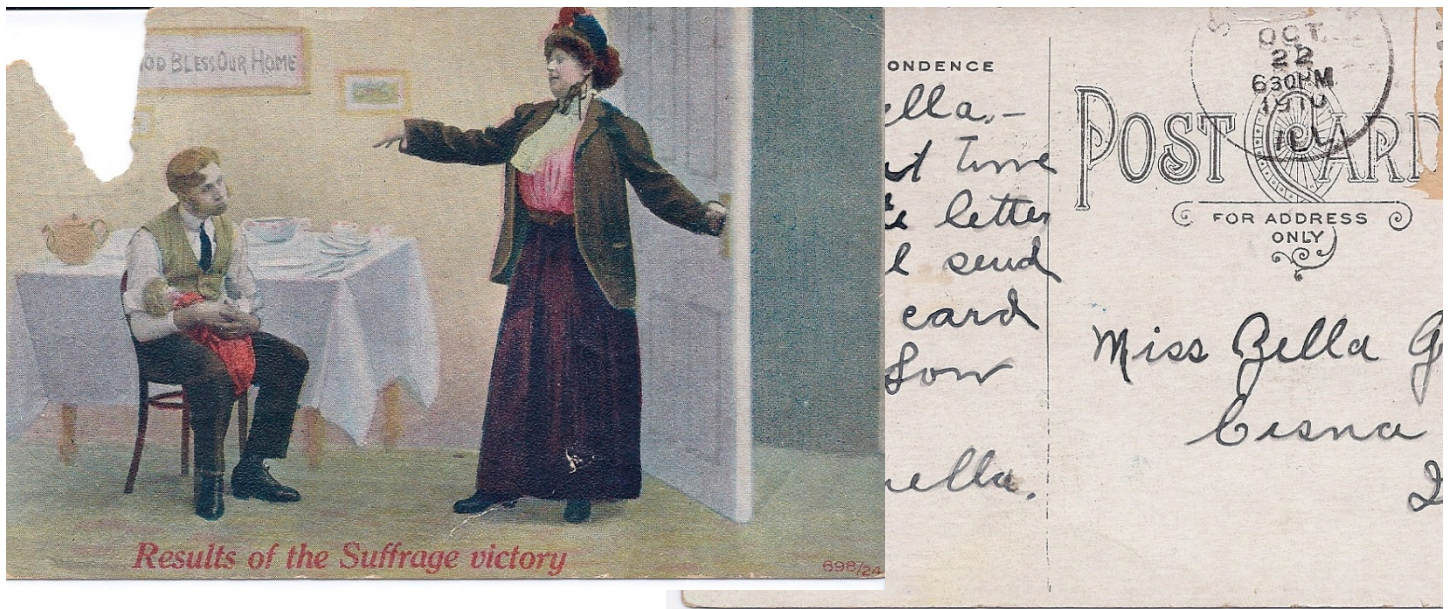 OD BLESS OUR HOME
Results of the Suffrage victory
698/24
ONDENCE
ella,-
t time
letter
l send
card
ella.
OCT
22
630 PM
1910
ILL
POST CARD
FOR ADDRESS
ONLY
Miss Zella G
Cisna